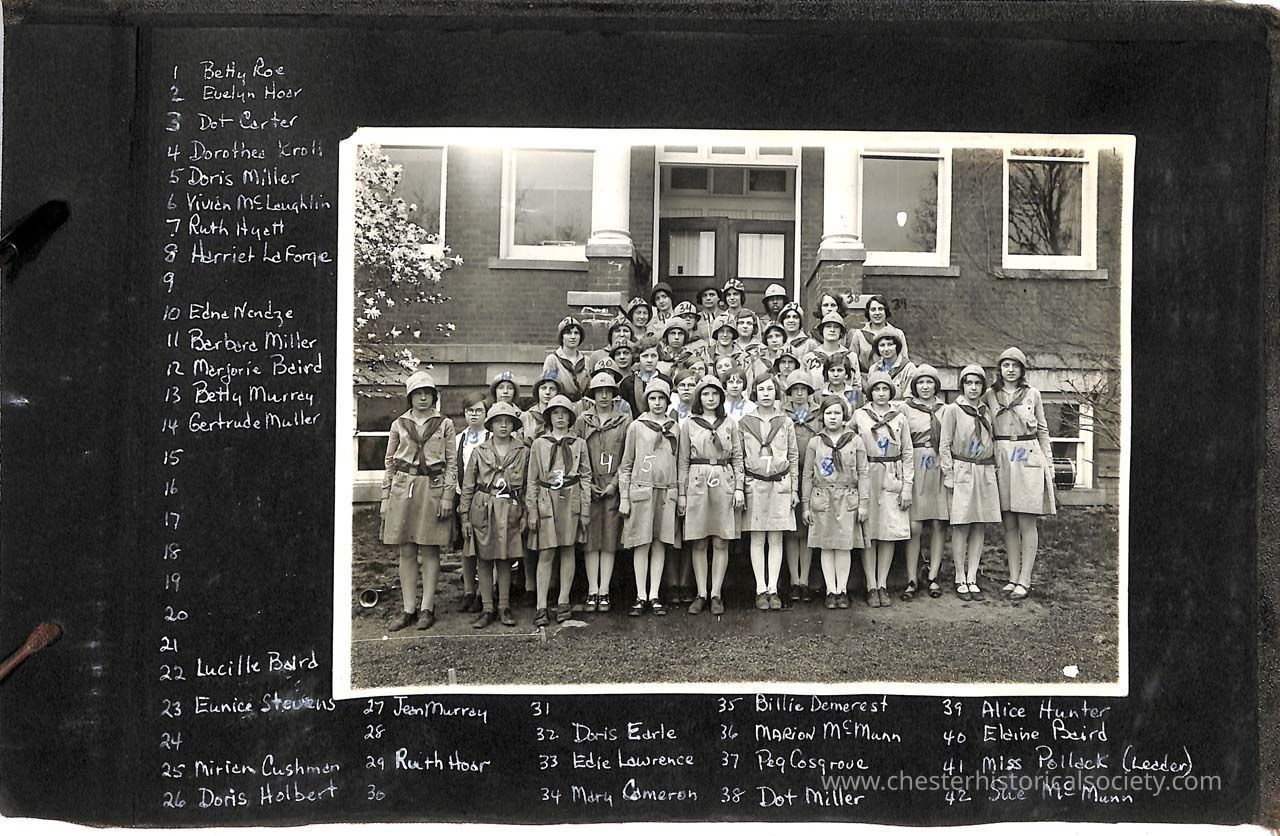 1 Betty Roe
2 Evelyn Hoar
3 Dot Carter
4 Dorothea Kroll
5 Doris Miller
6 Vivian McLaughlin
7 Ruth Hyatt
8 Harriet LaForge
9
10 Edna Nendze
11 Barbara Miller
12 Marjorie Baird
13 Betty Murray
14 Gertrude Muller
15
16
17
18
19
20
21
22 Lucille Baird
23 Eunice Stevens
24
25 Miriam Cushman
26 Doris Holbert
27 Jean Murray
28
29 Ruth Hoar
30
31
32 Doris Earle
33 Edie Lawrence
34 Mary Cameron
35 Billie Demerest
36 Marion McMunn
37 Peg Cosgrove
38 Dot Miller
39 Alice Hunter
40 Elaine Baird
41 Miss Pollack (Leader)
42 Sue McMunn
38 39
1 2 3 4 5 6 7 8 9 10 11 12
www.chesterhistoricalsociety.com